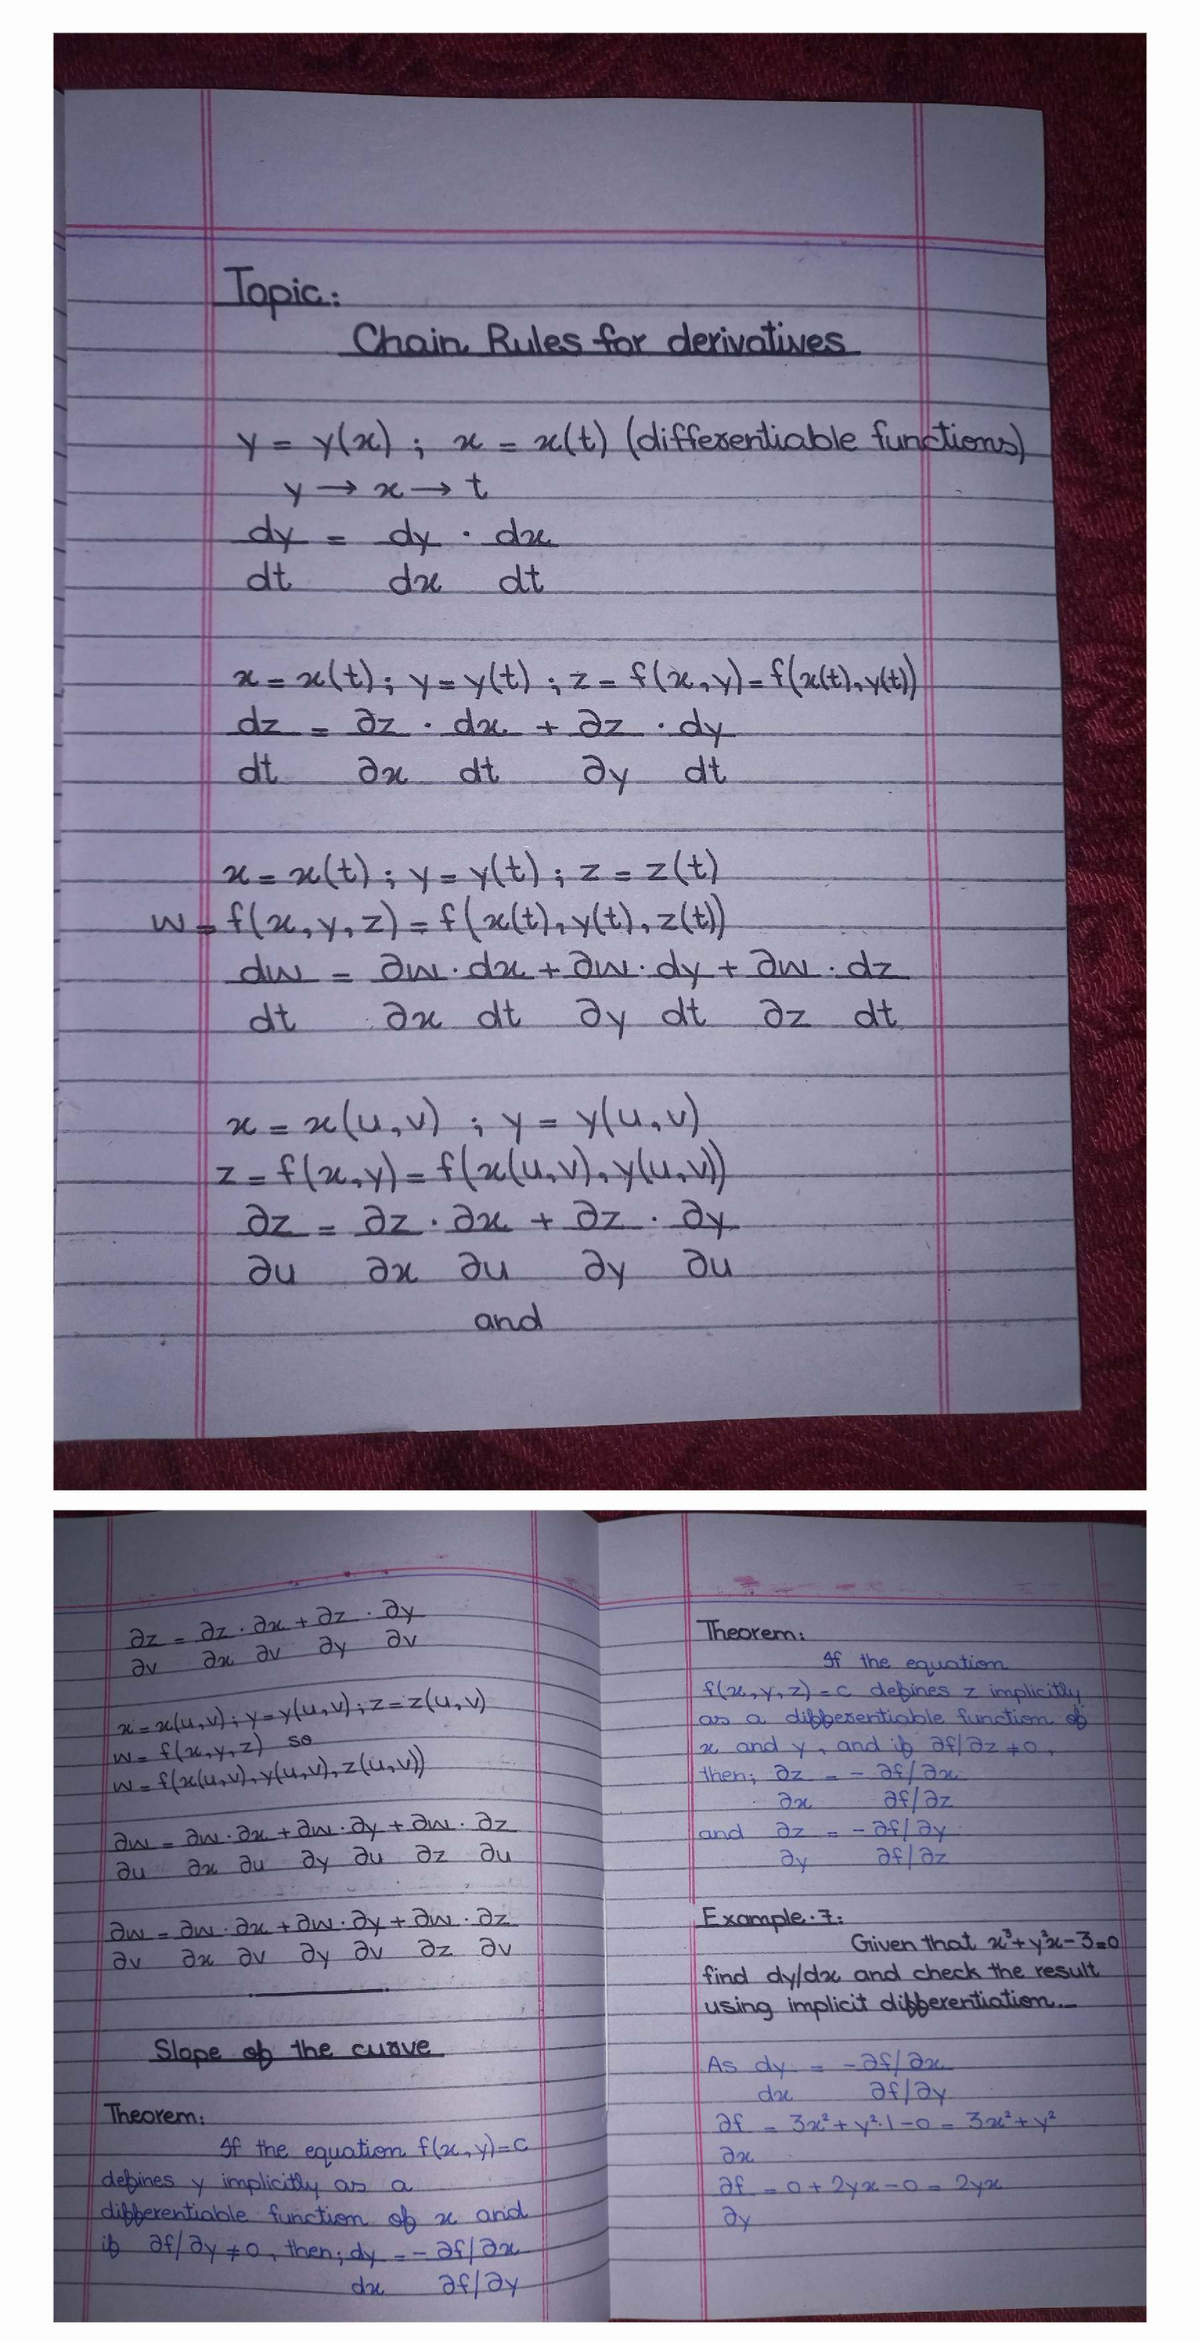 Topic:
Chain Rules for derivatives
y = y(x) ; x = x(t) (differentiable functions)
y → x → t
dy = dy · dx
dt dx dt
x = x(t) ; y = y(t) ; z = f(x, y) = f(x(t), y(t))
dz = ∂z · dx + ∂z · dy
dt ∂x dt ∂y dt
x = x(t) ; y = y(t) ; z = z(t)
w = f(x, y, z) = f(x(t), y(t), z(t))
dw = ∂w · dx + ∂w · dy + ∂w · dz
dt ∂x dt ∂y dt ∂z dt
x = x(u, v) ; y = y(u, v)
z = f(x, y) = f(x(u, v), y(u, v))
∂z = ∂z · ∂x + ∂z · ∂y
∂u ∂x ∂u ∂y ∂u
and
∂z = ∂z · ∂x + ∂z · ∂y
∂v ∂x ∂v ∂y ∂v
x = x(u, v) ; y = y(u, v) ; z = z(u, v)
w = f(x, y, z) so
w = f(x(u, v), y(u, v), z(u, v))
∂w = ∂w · ∂x + ∂w · ∂y + ∂w · ∂z
∂u ∂x ∂u ∂y ∂u ∂z ∂u
∂w = ∂w · ∂x + ∂w · ∂y + ∂w · ∂z
∂v ∂x ∂v ∂y ∂v ∂z ∂v
Slope of the curve
Theorem:
If the equation f(x, y) = c
defines y implicitly as a
differentiable function of x and
if ∂f/∂y ≠ 0, then; dy = - ∂f/∂x
dx ∂f/∂y
Theorem:
If the equation
f(x, y, z) = c defines z implicitly
as a differentiable function of
x and y, and if ∂f/∂z ≠ 0,
then; ∂z = - ∂f/∂x
∂x ∂f/∂z
and ∂z = - ∂f/∂y
∂y ∂f/∂z
Example.7:
Given that x³ + y²x - 3 = 0
find dy/dx and check the result
using implicit differentiation.
As dy = - ∂f/∂x
dx ∂f/∂y
∂f = 3x² + y²·1 - 0 = 3x² + y²
∂x
∂f = 0 + 2yx - 0 = 2yx
∂y